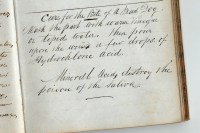 Cure for the Bite of a Mad Dog
Wash the part with warm vinegar
or tepid water. Then pour
upon the wound a few drops of
Hydrochloric acid.
Mineral Acids destroy the
poison of the Saliva